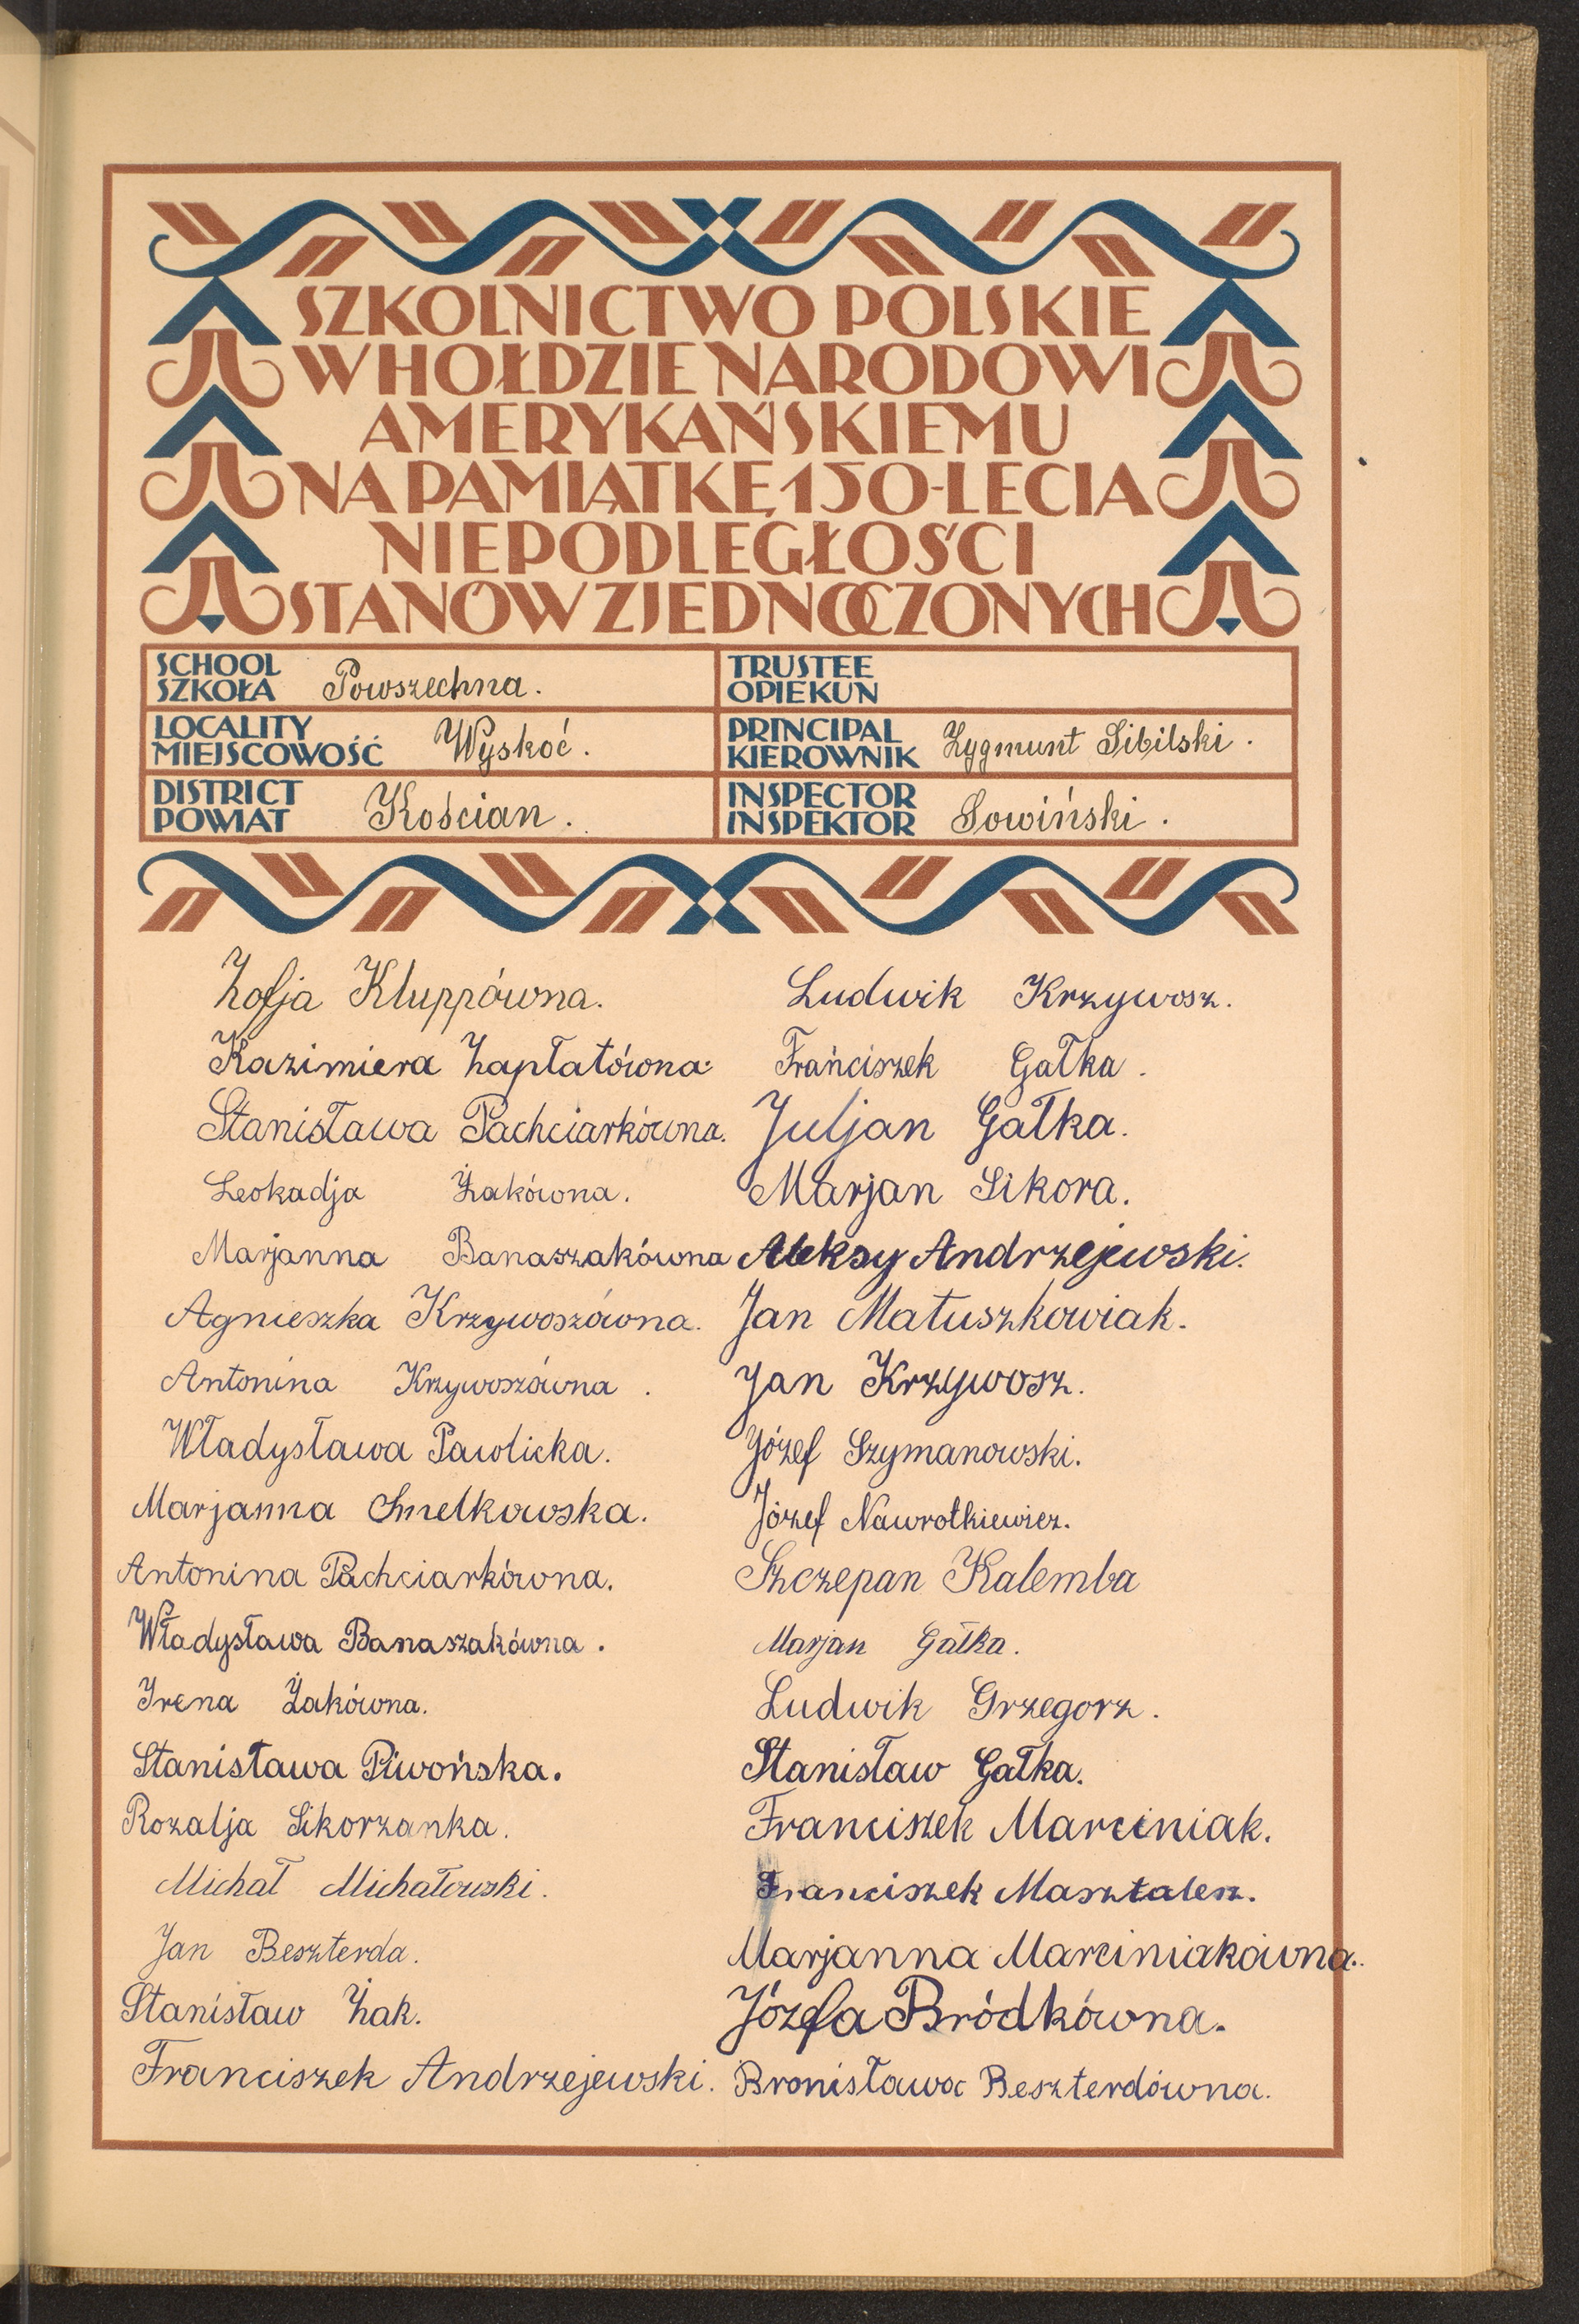 SZKOLNICTWO POLSKIE
W HOŁDZIE NARODOWI
AMERYKAŃSKIEMU
NA PAMIĄTKĘ 150-LECIA
NIEPODLEGŁOŚCI
STANÓW ZJEDNOCZONYCH
SCHOOL
SZKOŁA Powszechna.
TRUSTEE
OPIEKUN
LOCALITY
MIEJSCOWOŚĆ Wyskoć.
PRINCIPAL
KIEROWNIK Zygmunt Sibilski.
DISTRICT
POWIAT Kościan.
INSPECTOR
INSPEKTOR Sowiński.
Zofja Kluppówna.
Kazimiera Zapłatówna.
Stanisława Pachciarkówna.
Leokadja Żakówna.
Marjanna Banaszakówna
Agnieszka Krzywoszówna.
Antonina Krzywoszówna.
Władysława Pawlicka.
Marjanna Smelkowska.
Antonina Pachciarkówna.
Władysława Banaszakówna.
Irena Żakówna.
Stanisława Piwońska.
Rozalja Sikorzanka.
Michał Michałowski.
Jan Beszterda.
Stanisław Żak.
Franciszek Andrzejewski.
Ludwik Krzywosz.
Frańciszek Gałka.
Juljan Gałka.
Marjan Sikora.
Aleksy Andrzejewski.
Jan Matuszkowiak.
Jan Krzywosz.
Józef Szymanowski.
Józef Nawrotkiewicz.
Szczepan Kalemba
Marjan Gałka.
Ludwik Grzegorz.
Stanisław Gałka.
Franciszek Marciniak.
Franciszek Masztalerz.
Marjanna Marciniakówna.
Józefa Bródkówna.
Bronisława Beszterdówna.